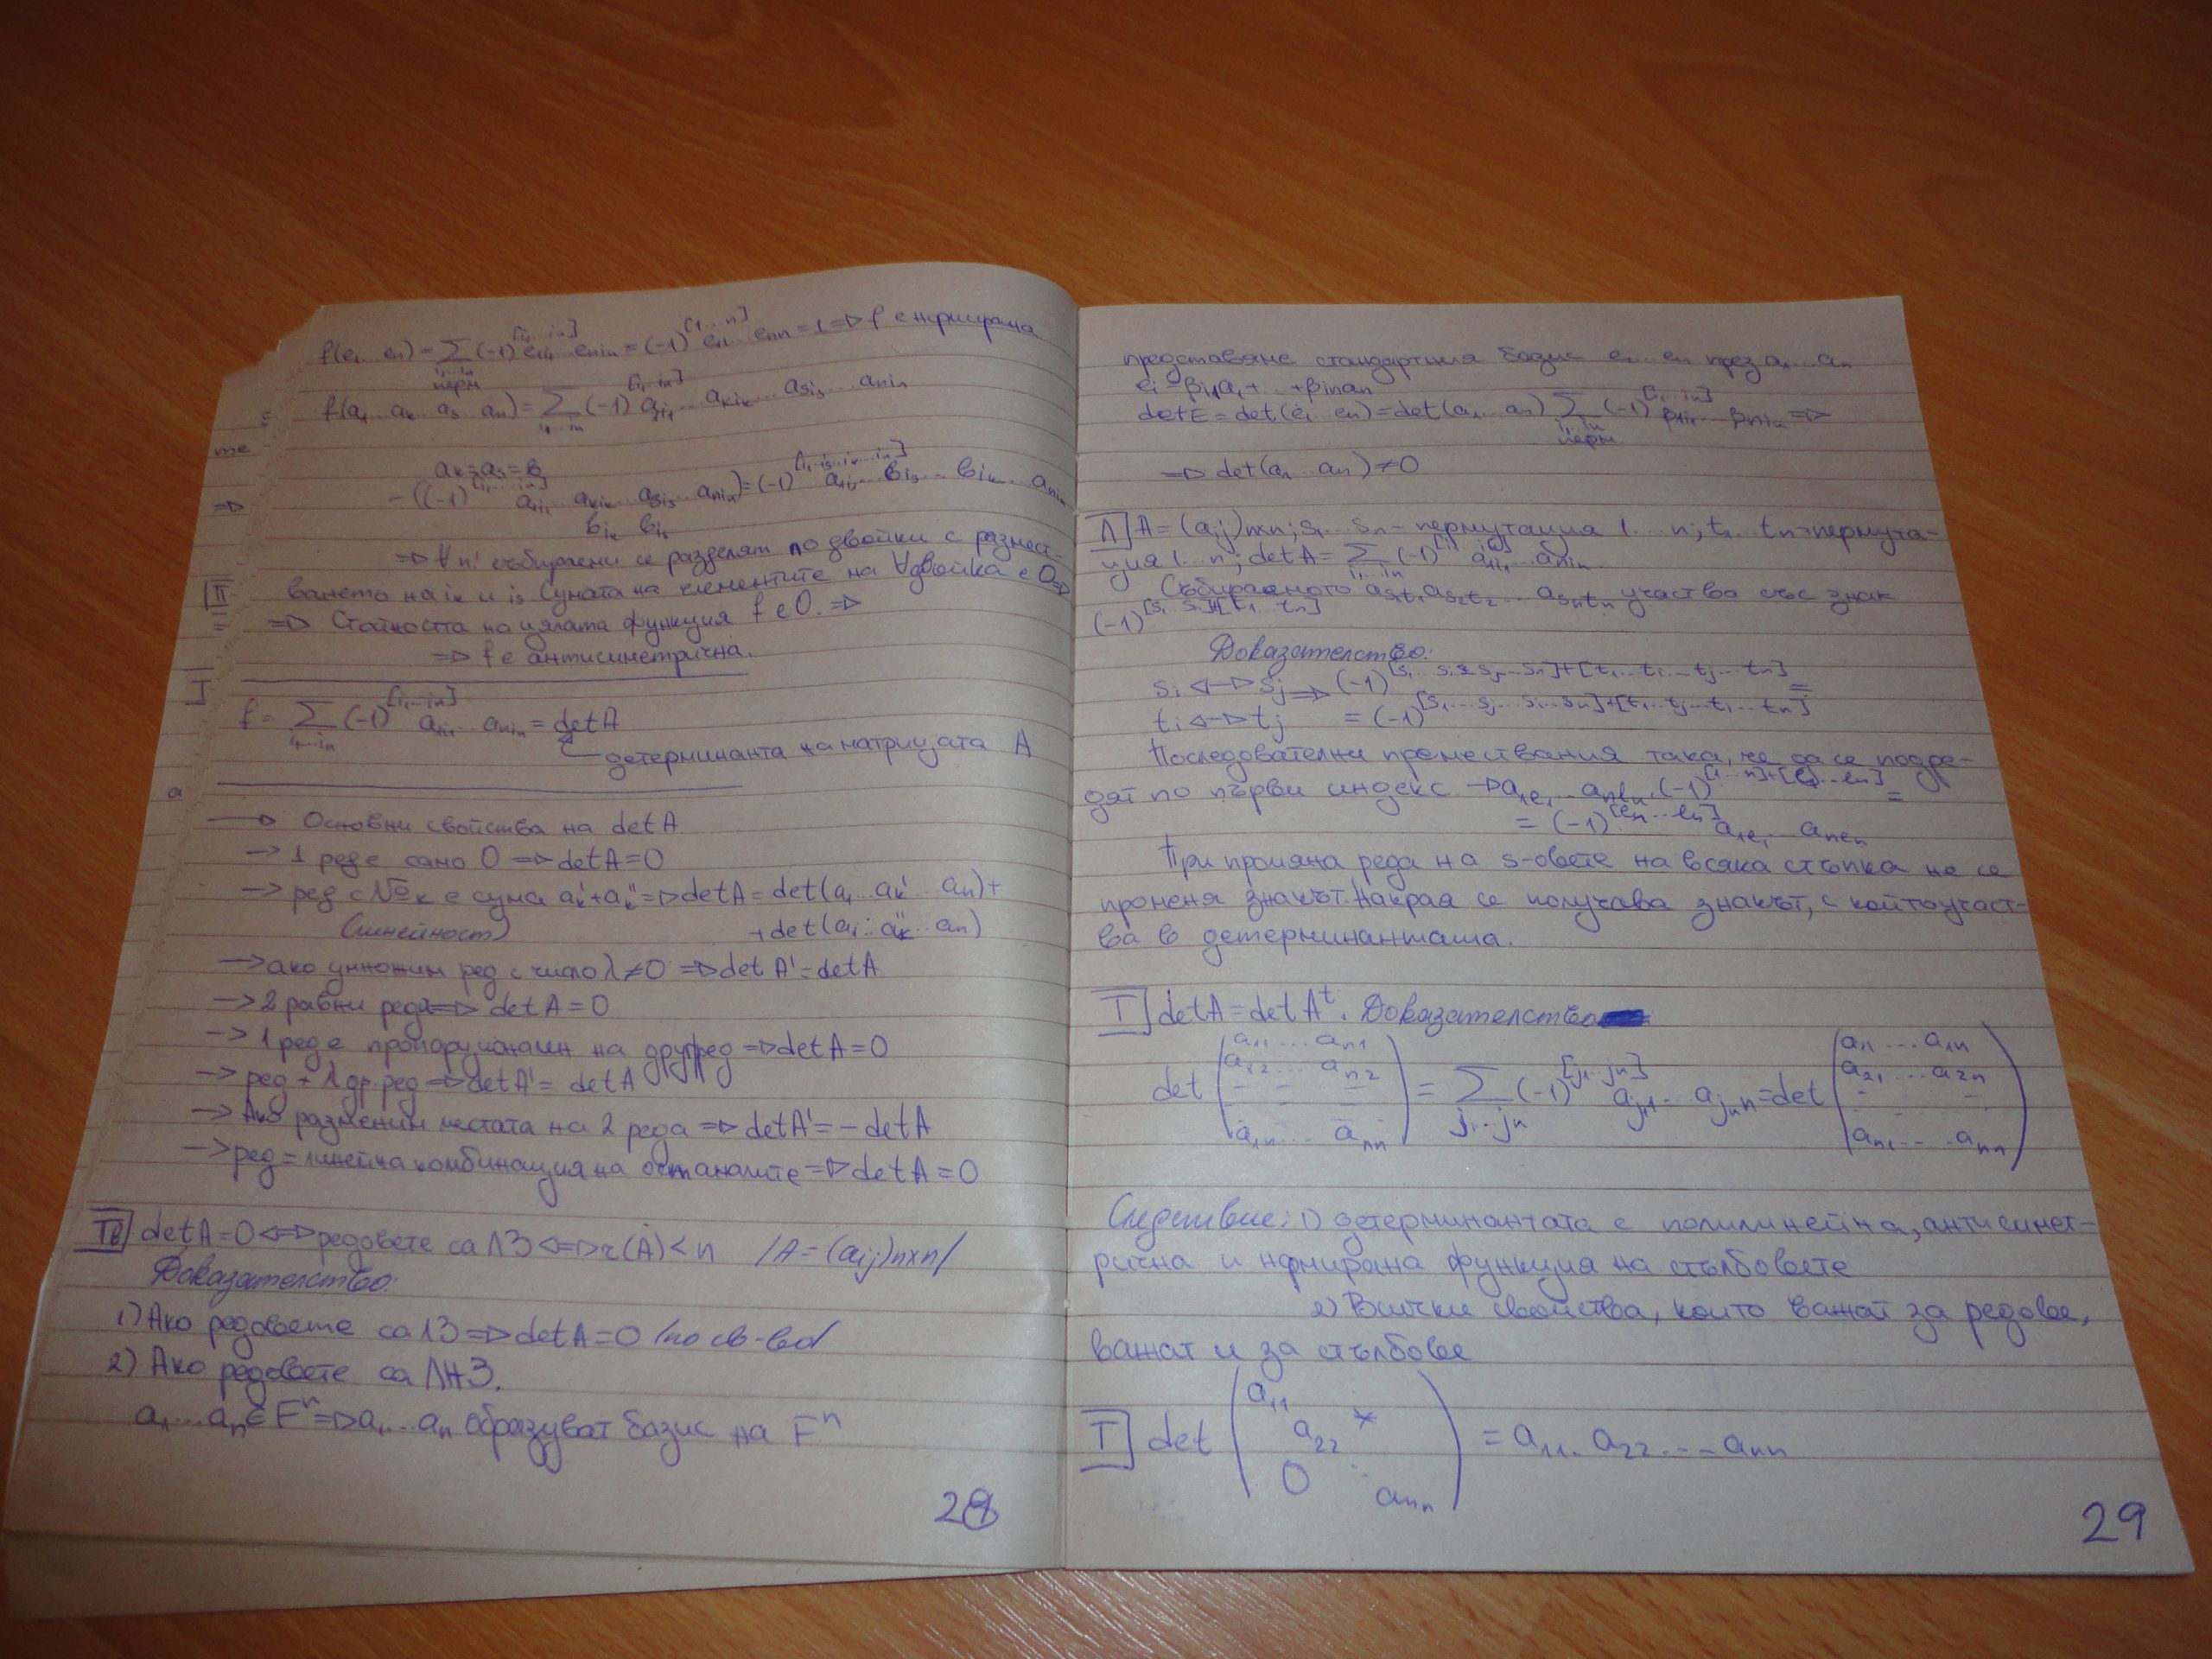 f(e₁...eₙ) = ∑ (-1)^[i₁...iₙ] e₁i₁...eₙiₙ = (-1)^[1...n] e₁₁...eₙₙ = 1 => f е нормирана
i₁...iₙ
перм
f(a₁..aₖ..aₛ..aₙ) = ∑ (-1)^[i₁...iₙ] a₁i₁...aₖiₖ...aₛiₛ...aₙiₙ
i₁...iₙ
те
aₖ=aₛ=b
=> -((-1)^[i₁...iₙ] a₁i₁..aₖiₖ..aₛiₛ..aₙiₙ) = (-1)^[i₁..iₛ..iₖ...iₙ] a₁i₁...biₛ...biₖ...aₙiₙ
biₖ biₛ
=> ∀ n! събираеми се разделят по двойки с размест-
ването на iₖ и iₛ. Сумата на елементите на ∀ двойка е 0 =>
=> Стойността на цялата функция f е 0. =>
=> f е антисиметрична.
f = ∑ (-1)^[i₁...iₙ] a₁i₁...aₙiₙ = detA
i₁...iₙ
детерминанта на матрицата A
а
→ Основни свойства на detA
→ 1 ред е само 0 => detA=0
→ ред с №k е сума aₖ'+aₖ'' => detA = det(a₁...aₖ'...aₙ)+
(линейност) +det(a₁...aₖ''...aₙ)
→ ако умножим ред с число λ≠0 => det A'=detA
→ 2 равни реда => detA=0
→ 1 ред е пропорционален на друг ред => detA=0
→ ред + λ др. ред => detA' = detA
→ Ако разменим местата на 2 реда => detA' = -detA
→ ред = линейна комбинация на останалите => detA=0
Тв] detA=0 <=> редовете са ЛЗ <=> r(A)<n /A=(aij)nxn/
Доказателство:
1) Ако редовете са ЛЗ => detA=0 /по св-во/
2) Ако редовете са ЛНЗ.
a₁...aₙ∈Fⁿ => a₁...aₙ образуват базис на Fⁿ
28
представяне стандартния базис e₁...eₙ през a₁...aₙ
eᵢ=βi₁a₁+..+βinaₙ
detE = det(e₁..eₙ) = det(a₁...aₙ) ∑ (-1)^[i₁...iₙ] β₁i₁...βₙiₙ =>
i₁...iₙ
перм
=> det(a₁...aₙ)≠0
Л] A=(aij)nxn; s₁...sₙ - пермутация 1...n; t₁..tₙ - пермута-
ция 1...n; detA = ∑ (-1)^[i₁...iₙ] a₁i₁...aₙiₙ
i₁...iₙ
Събираемото as₁t₁as₂t₂...asₙtₙ участва със знак
(-1)^[s₁..sₙ]+[t₁...tₙ]
Доказателство:
sᵢ <-> sⱼ => (-1)^[s₁...sᵢ...sⱼ...sₙ]+[t₁...tᵢ...tⱼ...tₙ] =
tᵢ <-> tⱼ = (-1)^[s₁...sⱼ...sᵢ...sₙ]+[t₁...tⱼ...tᵢ...tₙ]
Последователни премествания така, че да се подре-
дят по първи индекс. → a₁ℓ₁...aₙℓₙ.(-1)^[1...n]+[ℓ₁...ℓₙ] =
= (-1)^[ℓₙ...ℓₙ] a₁ℓ₁...aₙℓₙ
При промяна реда на s-овете на всяка стъпка не се
променя знакът. Накрая се получава знакът, с който участ-
ва в детерминантата.
Т] detA = detAᵗ. Доказателство
det (a₁₁...aₙ₁ = ∑ (-1)^[j₁...jₙ] aj₁1...ajₙn = det (a₁₁...a₁ₙ
a₁₂...aₙ₂ j₁...jₙ a₂₁...a₂ₙ
a₁ₙ...aₙₙ) aₙ₁...aₙₙ)
Следствие: 1) детерминантата е полилинейна, антисимет-
рична и нормирана функция на стълбовете
2) Всички свойства, които важат за редове,
важат и за стълбове
Т] det (a₁₁ a₂₂ * 0 aₙₙ) = a₁₁.a₂₂...aₙₙ
29